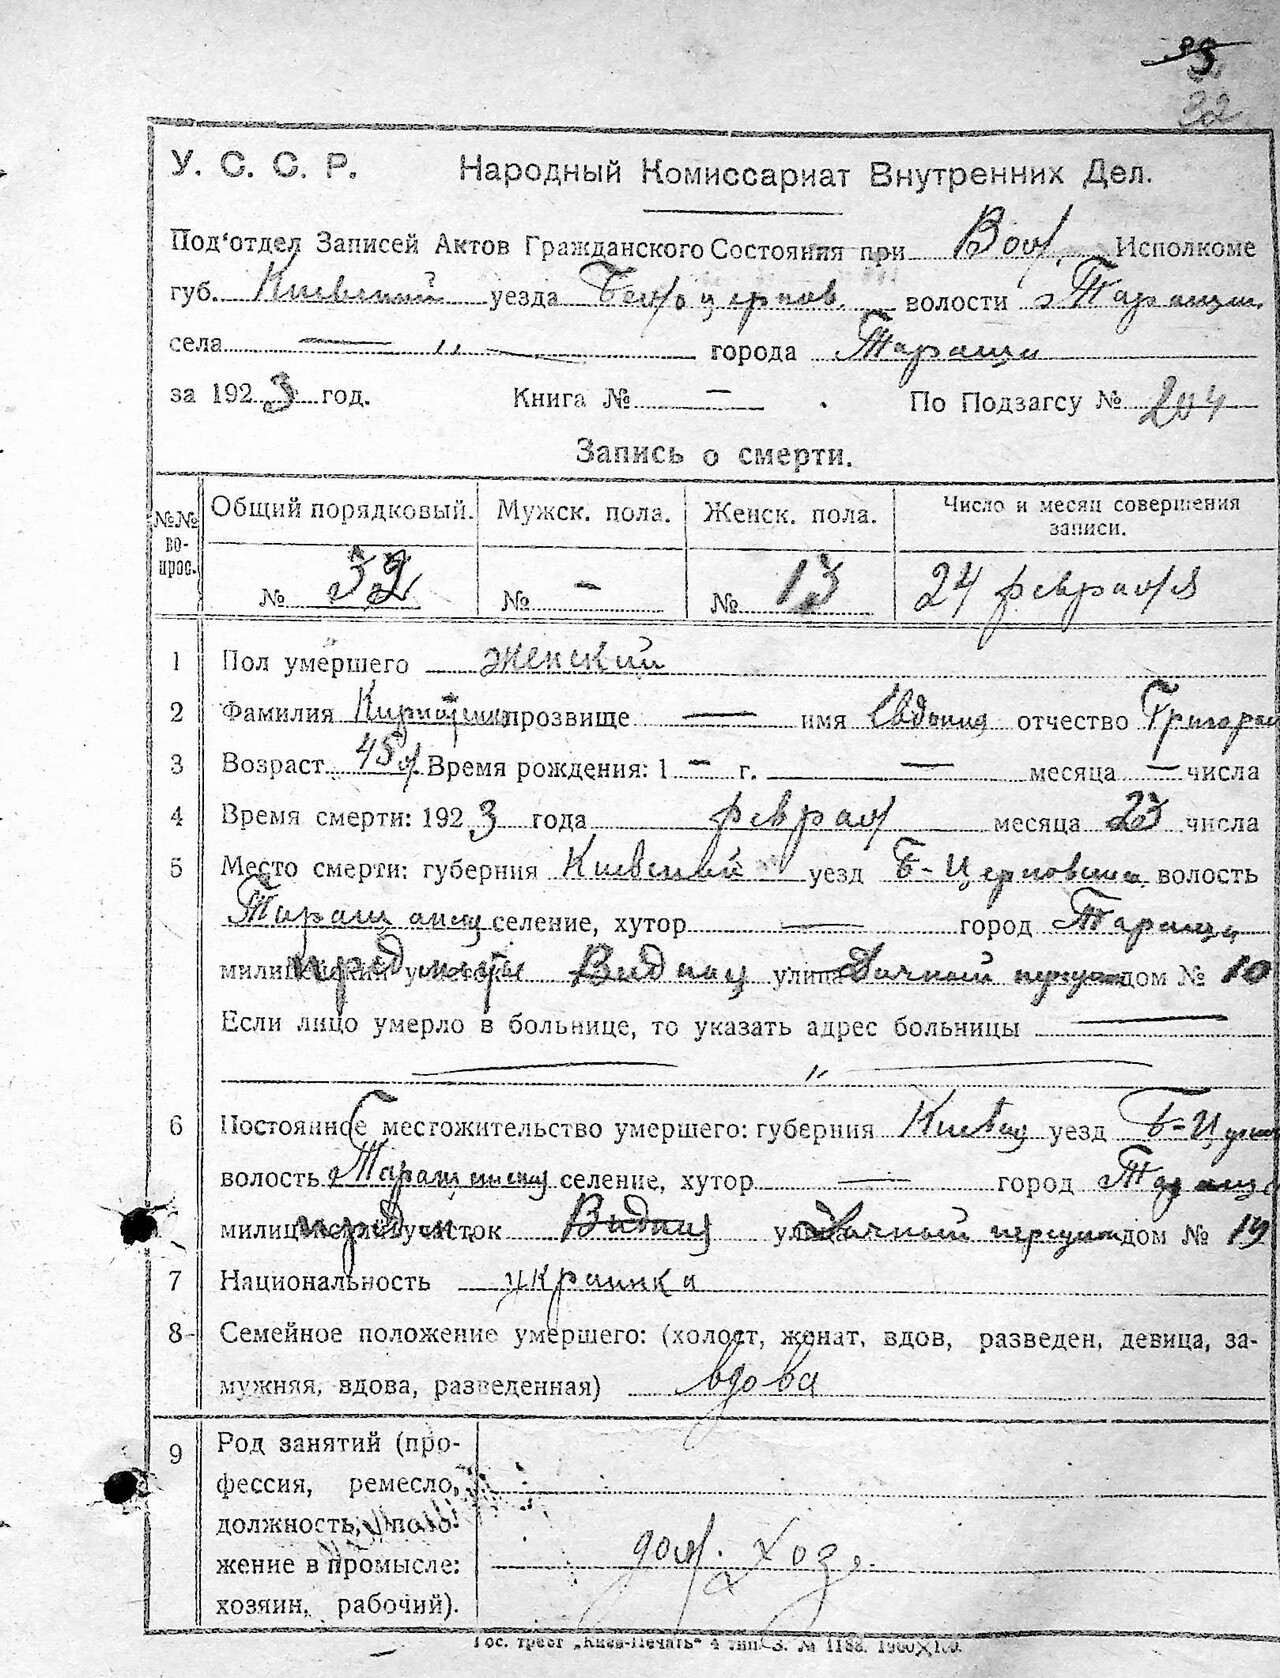 32
У. С. С. Р. Народный Комиссариат Внутренних Дел.
Под'отдел Записей Актов Гражданского Состояния при Вол. Исполкоме
губ. Киевский уезда Белоцерков. волости Таращан.
села — „ — города Тараща
за 1923 год. Книга № — По Подзагсу № 204
Запись о смерти.
№№ вопрос. Общий порядковый. Мужск. пола. Женск. пола. Число и месяц совершения записи.
№ 32 № — № 13 24 февраля
1 Пол умершего женский
2 Фамилия прозвище — имя Евдокия отчество Григорьев
3 Возраст 45 л. Время рождения: 1 — г. — месяца — числа
4 Время смерти: 1923 года феврал месяца 23 числа
5 Место смерти: губерния Киевский уезд Б-Церковский волость
Таращанск селение, хутор — город Тараща
милицейский участок улица Дачный переул дом № 10
Если лицо умерло в больнице, то указать адрес больницы —
— „ —
6 Постоянное местожительство умершего: губерния Киевск уезд Б-Церк
волость Таращанск селение, хутор — город Тараща
милицейский участок улица Дачный переул дом № 19
7 Национальность украинка
8 Семейное положение умершего: (холост, женат, вдов, разведен, девица, за-
мужняя, вдова, разведенная) вдова
9 Род занятий (про-
фессия, ремесло,
должность, поло-
жение в промысле: дом. хоз.
хозяин, рабочий).
Гос. трест „Киев-Печать" 4 тип. З. № 1188.